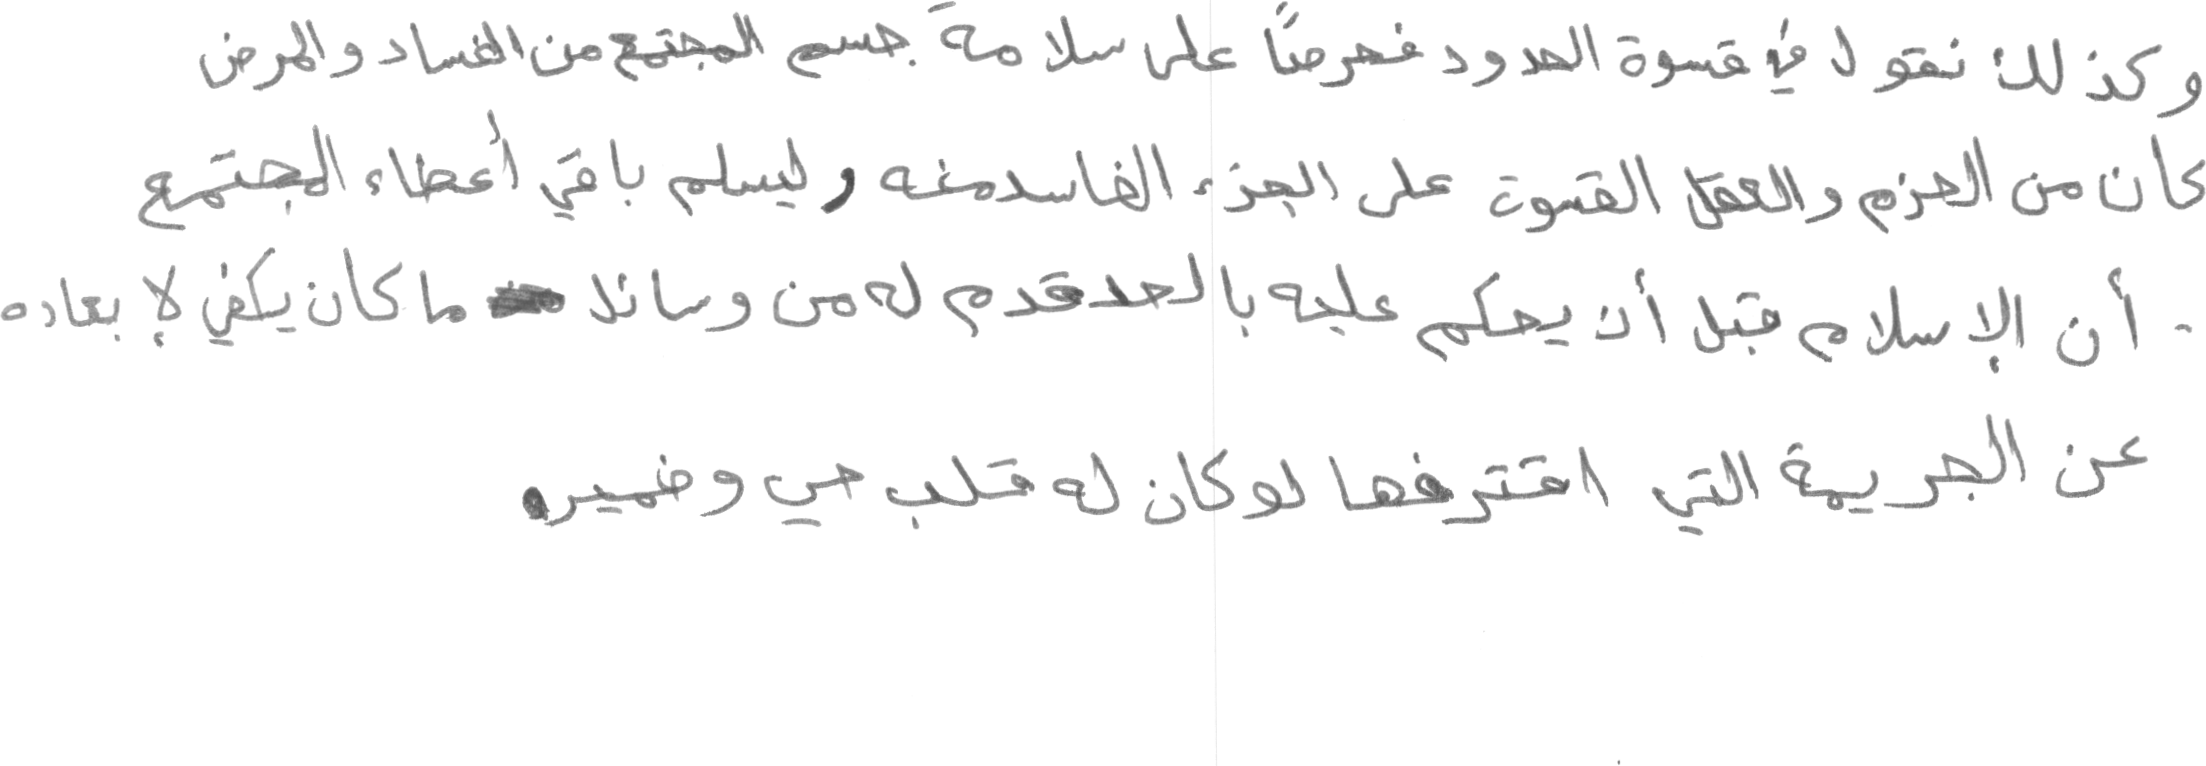 وكذلك نقول في قسوة الحدود فحرصًا على سلامة جسم المجتمع من الفساد والمرض
كان من الحزم والعقل القسوة على الجزء الفاسد منه وليسلم باقي أعطاء المجتمع
- أن الإسلام قبل أن يحكم عليه بالحد قدم له من وسائلا ما كان يكفي لإبعاده
عن الجريمة التي اقترفها لو كان له قلب حي وضمير.